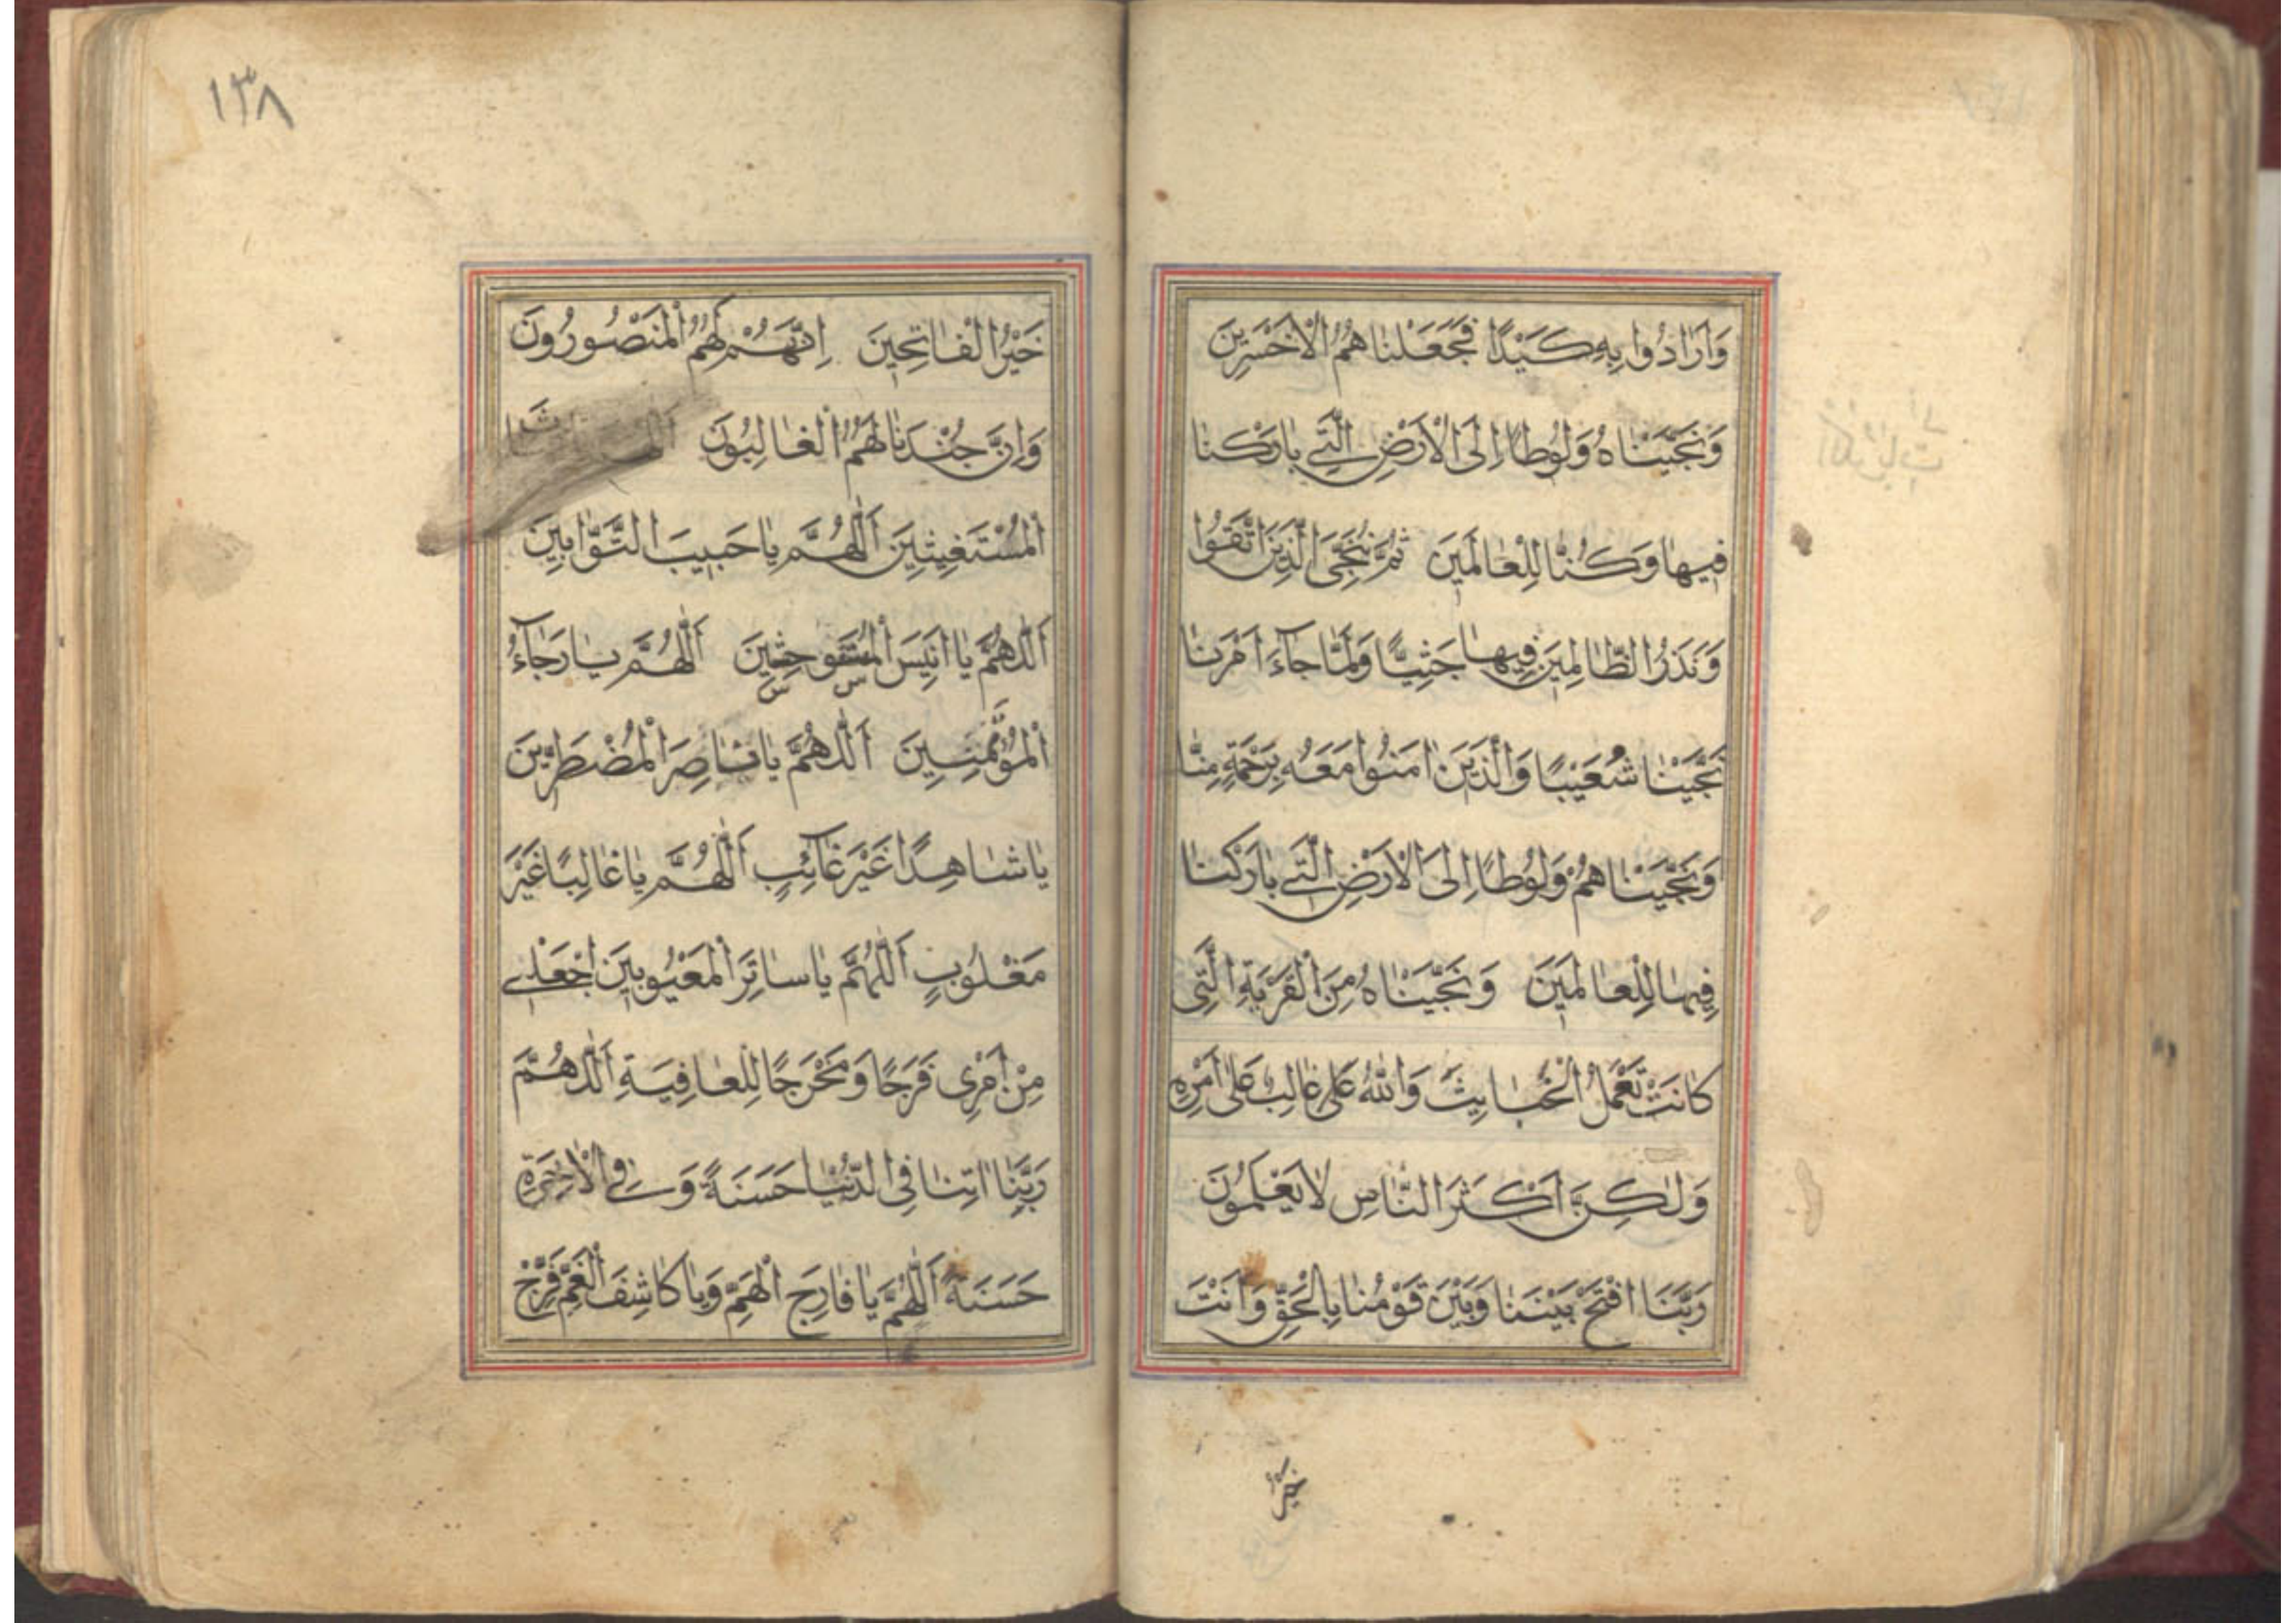 وَاَرٰادُوا بِهِ كَيْدًا فَجَعَلْنٰا هُمُ الْاَخْسَرِينَ
وَنَجَّيْنٰاهُ وَلُوطًا اِلَى الْاَرْضِ الَّتِي بٰارَكْنٰا
فِيهٰا وَكُنّٰا لِلْعٰالَمِينَ ثُمَّ نُنَجِّى الَّذِينَ اتَّقَوْا
وَنَذَرُ الظّٰالِمِينَ فِيهٰا جَثِيًّا وَلَمّٰا جٰآءَ اَمْرُنٰا
نَجَّيْنٰا شُعَيْبًا وَالَّذِينَ اٰمَنُوا مَعَهُ بِرَحْمَةٍ مِنّٰا
وَنَجَّيْنٰا هُمْ وَلُوطًا اِلَى الْاَرْضِ الَّتِي بٰارَكْنٰا
فِيهٰا لِلْعٰالَمِينَ وَنَجَّيْنٰاهُ مِنَ الْقَرْيَةِ الَّتِى
كٰانَتْ تَعْمَلُ الْخَبٰايِثَ وَاللّٰهُ عَلٰى غٰالِبٌ عَلٰى اَمْرِهِ
وَلٰكِنَّ اَكْثَرَ النّٰاسِ لٰا يَعْلَمُونَ
رَبَّنَا افْتَحْ بَيْنَنٰا وَبَيْنَ قَوْمِنٰا بِالْحَقِّ وَاَنْتَ
خَيْرُ
١٣٨
خَيْرُ الْفٰاتِحِينَ اِنَّهُمْ لَهُمُ الْمَنْصُورُونَ
وَاِنَّ جُنْدَنٰا لَهُمُ الْغٰالِبُونَ
الْمُسْتَغِيثِينَ اَللّٰهُمَّ يٰا حَبِيبَ التَّوّٰابِينَ
اَللّٰهُمَّ يٰا اَنِيسَ اَللّٰهُمَّ يٰا رَجٰآءُ
الْمُؤْمِنِينَ اَللّٰهُمَّ يٰا نٰاصِرَ الْمُضْطَرِّينَ
يٰا شٰاهِدًا غَيْرَ غٰآئِبٍ اَللّٰهُمَّ يٰا غٰالِبًا غَيْرَ
مَغْلُوبٍ اَللّٰهُمَّ يٰا سٰاتِرَ الْمَعْيُوبِينَ اجْعَلْ لِي
مِنْ اَمْرِى فَرَجًا وَمَخْرَجًا لِلْعٰافِيَةِ اَللّٰهُمَّ
رَبَّنٰا اٰتِنٰا فِى الدُّنْيٰا حَسَنَةً وَ فِي الْاٰخِرَةِ
حَسَنَةً اَللّٰهُمَّ يٰا فٰارِجَ الْهَمِّ وَيٰا كٰاشِفَ الْغَمِّ فَرِّجْ